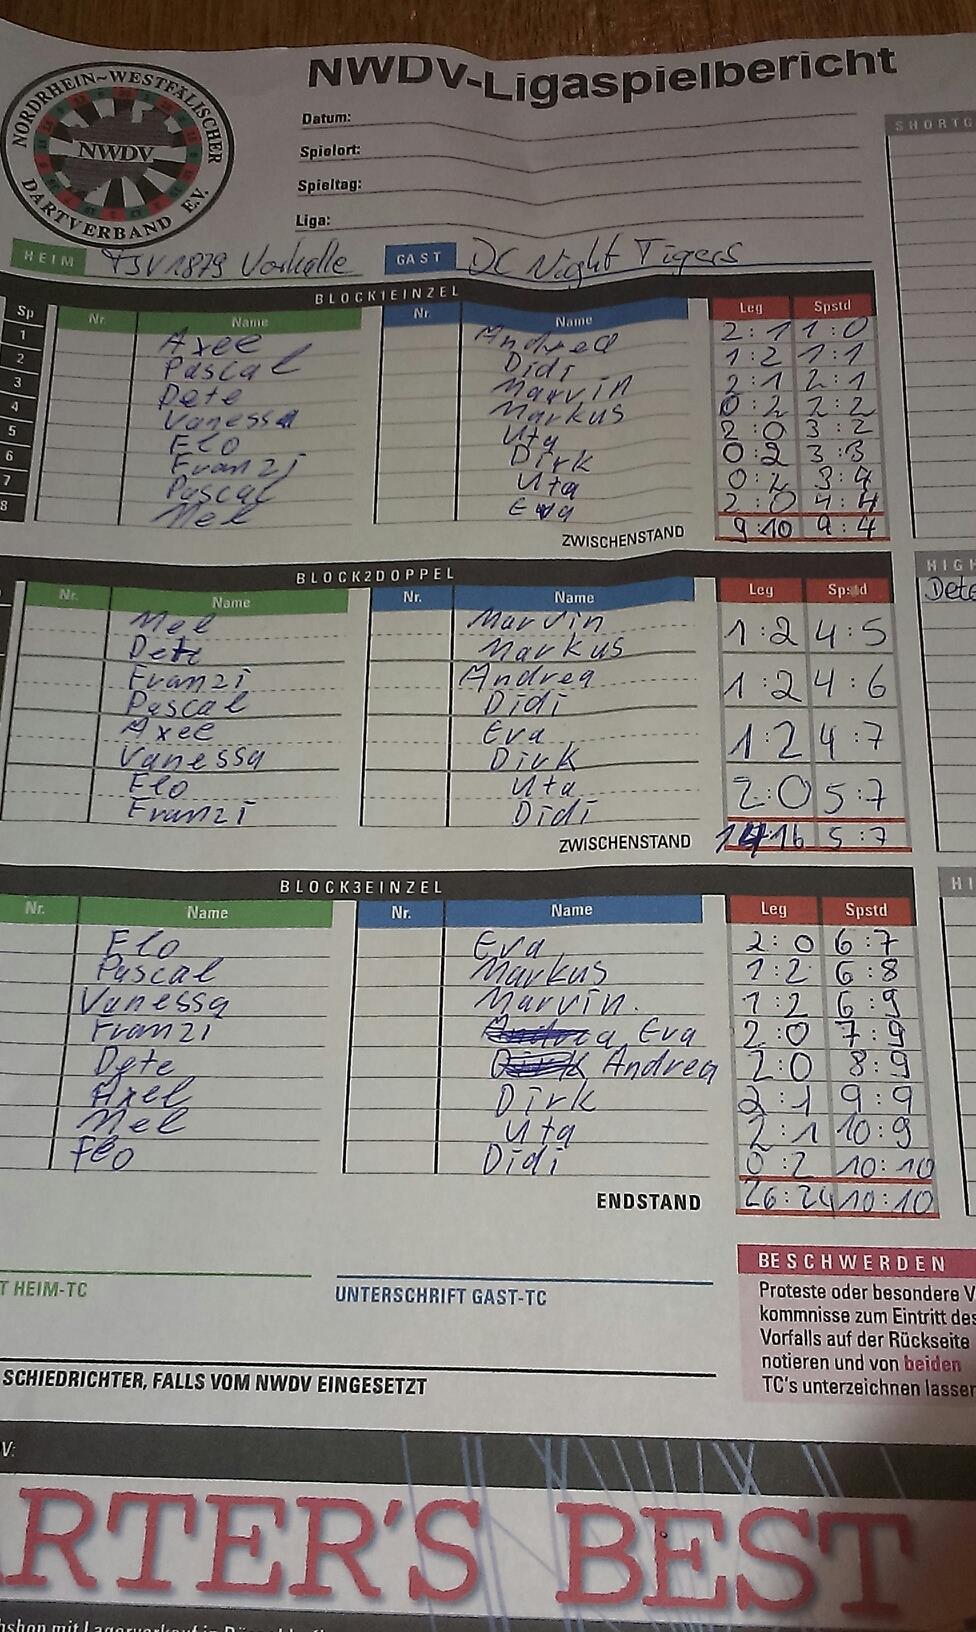 NWDV-Ligaspielbericht
NORDRHEIN~WESTFÄLISCHER
NWDV
DARTVERBAND E.V.
Datum:
Spielort:
Spieltag:
Liga:
SHORTG
HEIM TSV 1879 Vorhalle GAST DC Night Tigers
BLOCK1EINZEL
Sp Nr. Name Nr. Name Leg Spstd
1 Axel Andrea 2:1 1:0
2 Pascal Didi 1:2 1:1
3 Dete Marvin 2:1 2:1
4 Vanessa Markus 0:2 2:2
5 Flo Uta 2:0 3:2
6 Franzi Dirk 0:2 3:3
7 Pascal Uta 0:2 3:4
8 Mel Eva 2:0 4:4
ZWISCHENSTAND 9:10 4:4
BLOCK2DOPPEL
HIGH
Nr. Name Nr. Name Leg Spstd
Dete
Mel Marvin 1:2 4:5
Dete Markus
Franzi Andrea 1:2 4:6
Pascal Didi
Axel Eva 1:2 4:7
Vanessa Dirk
Flo Uta 2:0 5:7
Franzi Didi
ZWISCHENSTAND 14:16 5:7
BLOCK3EINZEL
HI
Nr. Name Nr. Name Leg Spstd
Flo Eva 2:0 6:7
Pascal Markus 1:2 6:8
Vanessa Marvin. 1:2 6:9
Franzi Eva 2:0 7:9
Dete Andrea 2:0 8:9
Axel Dirk 2:1 9:9
Mel Uta 2:1 10:9
Flo Didi 0:2 10:10
ENDSTAND 26:24 10:10
T HEIM-TC
UNTERSCHRIFT GAST-TC
BESCHWERDEN
Proteste oder besondere V
kommnisse zum Eintritt des
Vorfalls auf der Rückseite
notieren und von beiden
TC's unterzeichnen lassen
SCHIEDRICHTER, FALLS VOM NWDV EINGESETZT
V:
ARTER'S BEST